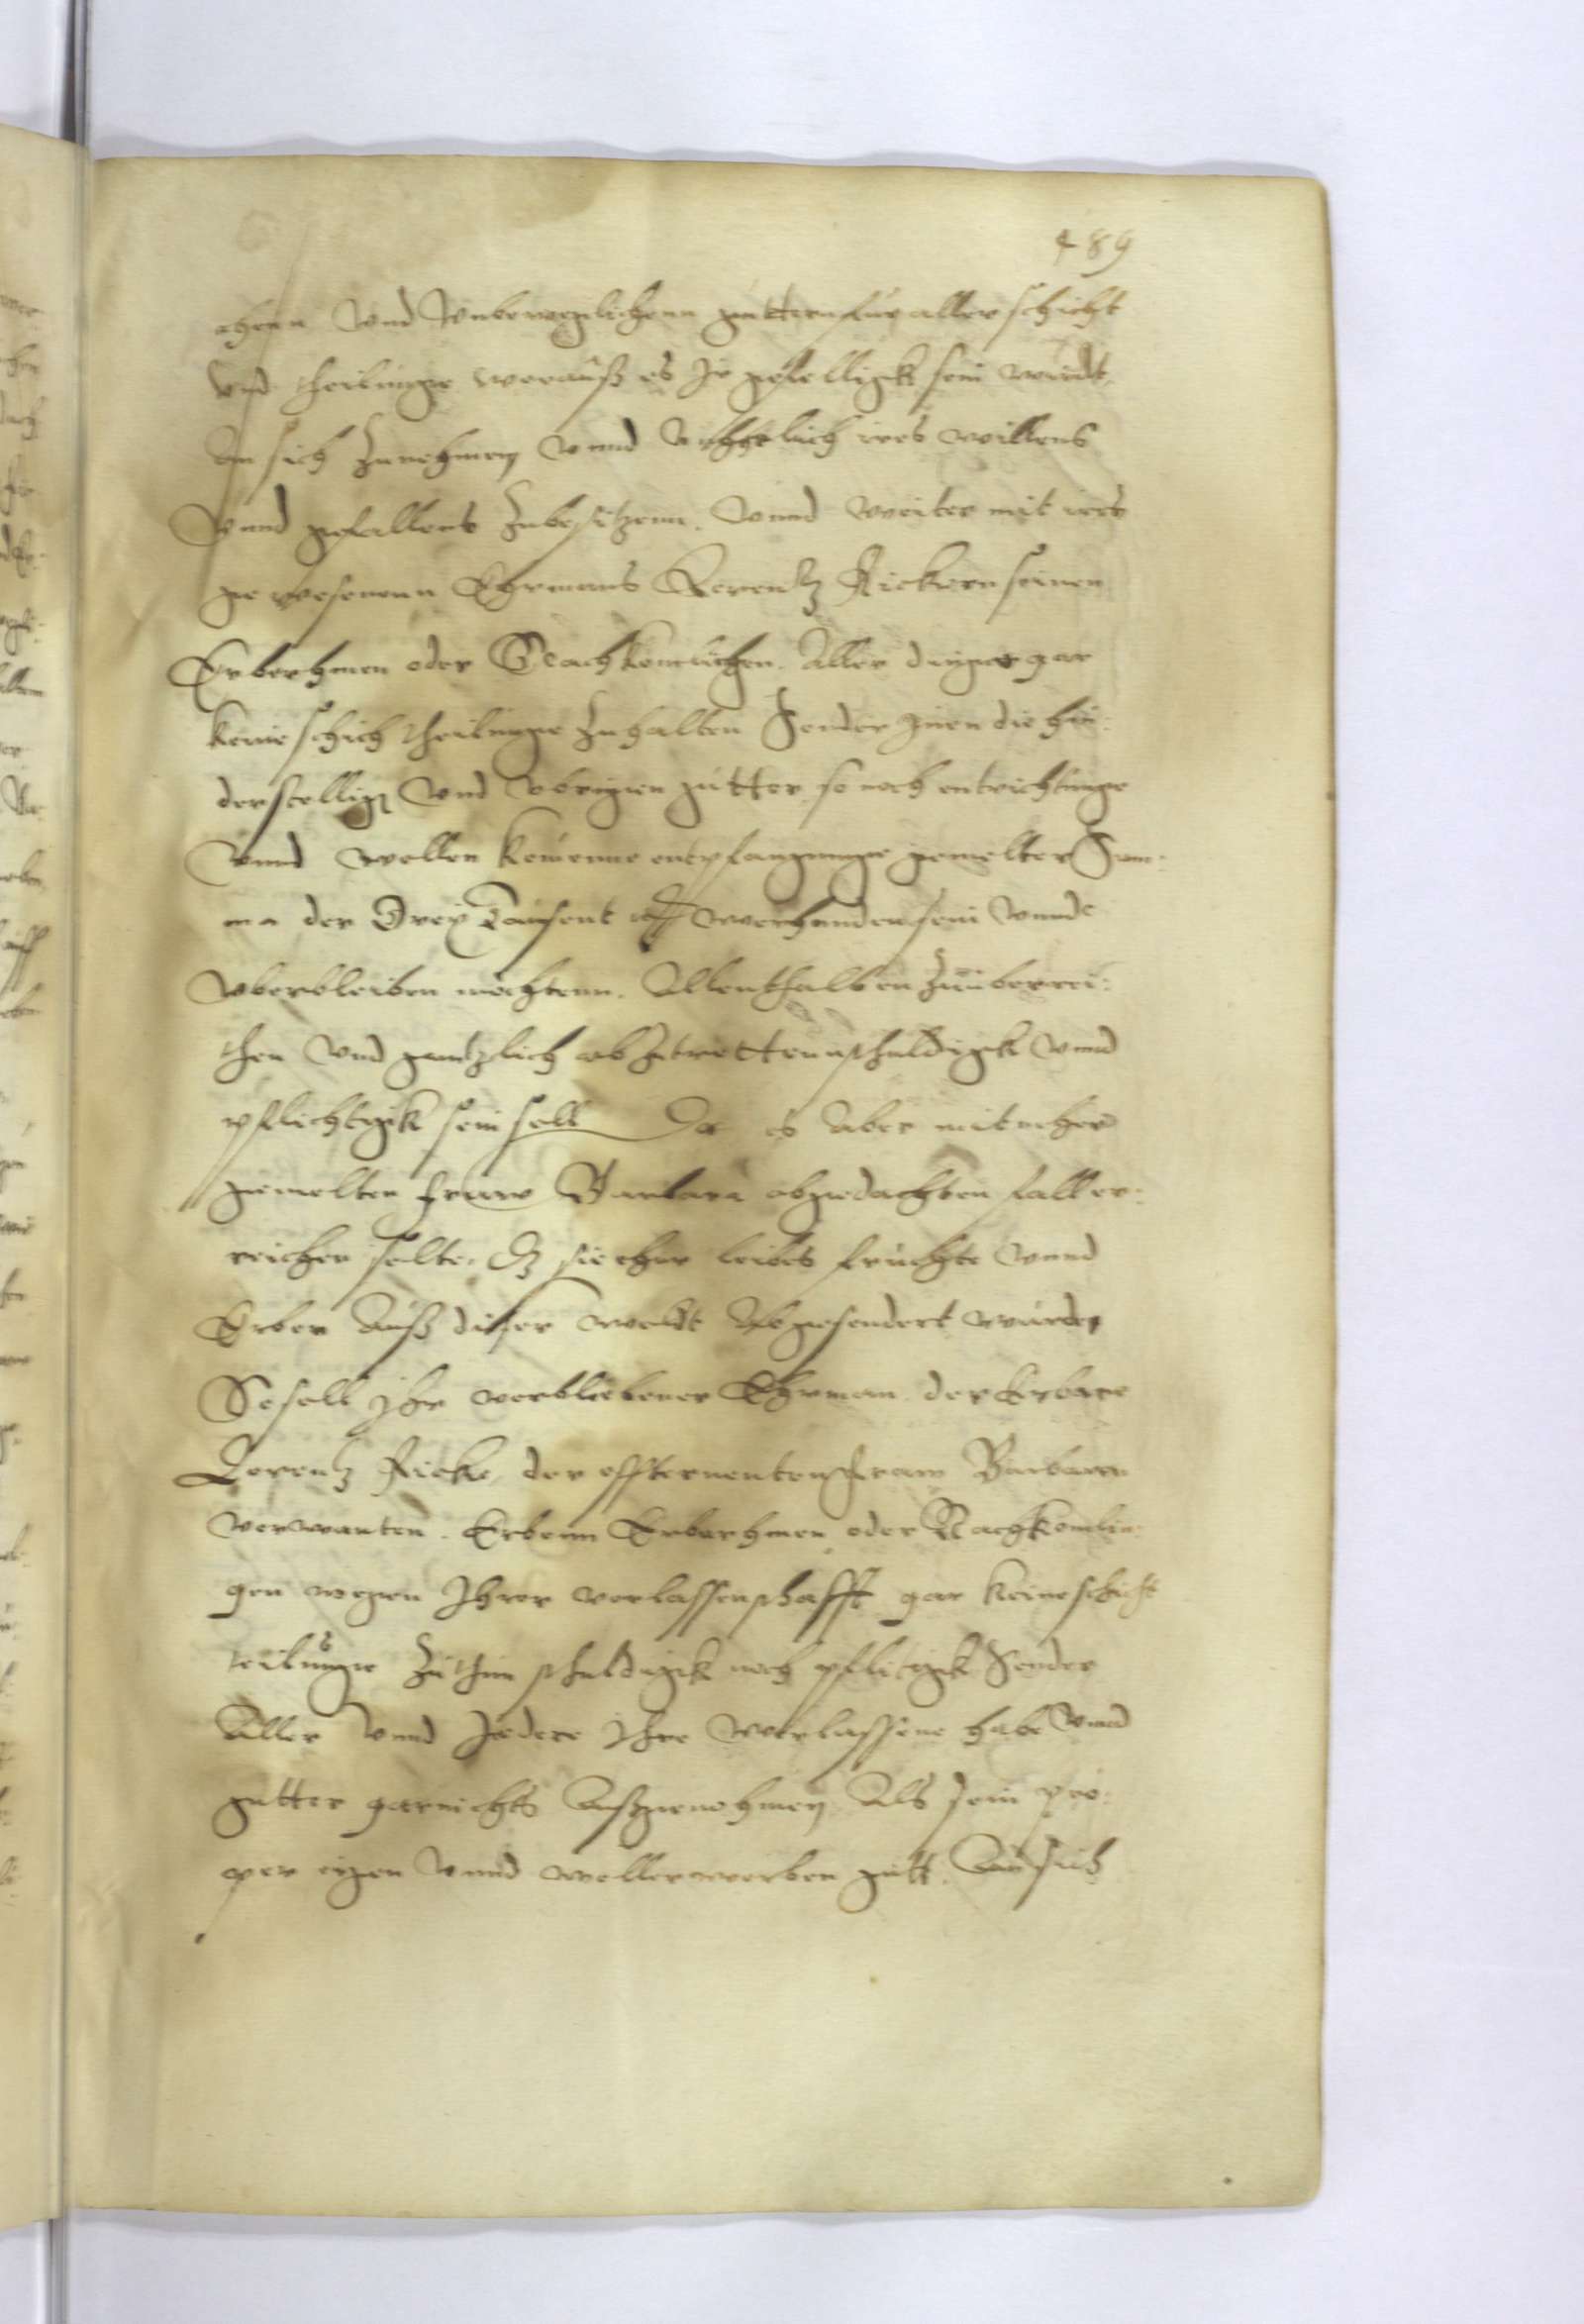 489
chenn vnd vnbeweglichenn guttern fur aller schicht
vnd theilunge woraŭß es jr gefelligk sein wurdt,
An sich zunehmen vnnd ires willens
vnnd gefallens zubesitzenn. Vnnd weiter mit ires
gewesenenn Ehemans Lorentz Rickern seinen
Erbenhmen oder Nachkomlichen. Aller dinges gar
keine schich theilunge zuhalten Sonder jnen die hin:
derstellig vnd vbrigen gutter, so noch entrichtunge
vnnd entpfangunge gemelter Sum:
ma der Drey Taŭsent vorhanden sein vnnd
vberbleiben mochtenn. Allenthalben zuuberrei:
chen vnd gantzlich abzutrettenn schuldigk vnnd
pflichtigk sein soll Da es aber mit
gemelten frauw Barbara obgedachten fall er:
reichen solte, dz sie ohne leibes fruchte vnnd
Erben Auß diser weldt Abgesondert wurde,
So soll jhr verbliebener Ehemann der Erbare
Lorentz Ricke, der offternenten frauw Barbaren
verwanten. Erbenn Erbenhmen oder Nachkomlin:
gen wegen Ihrer verlassenschafft gar keine schicht
teilŭnge zuthun schuldigk noch pflichtigk Sonder
Alle vnnd Jedere ihre verlassene habe vnnd
gutter garnichts Außgenohmen Als sein pro:
per eigen vnnd wollerworben gutt. An sich